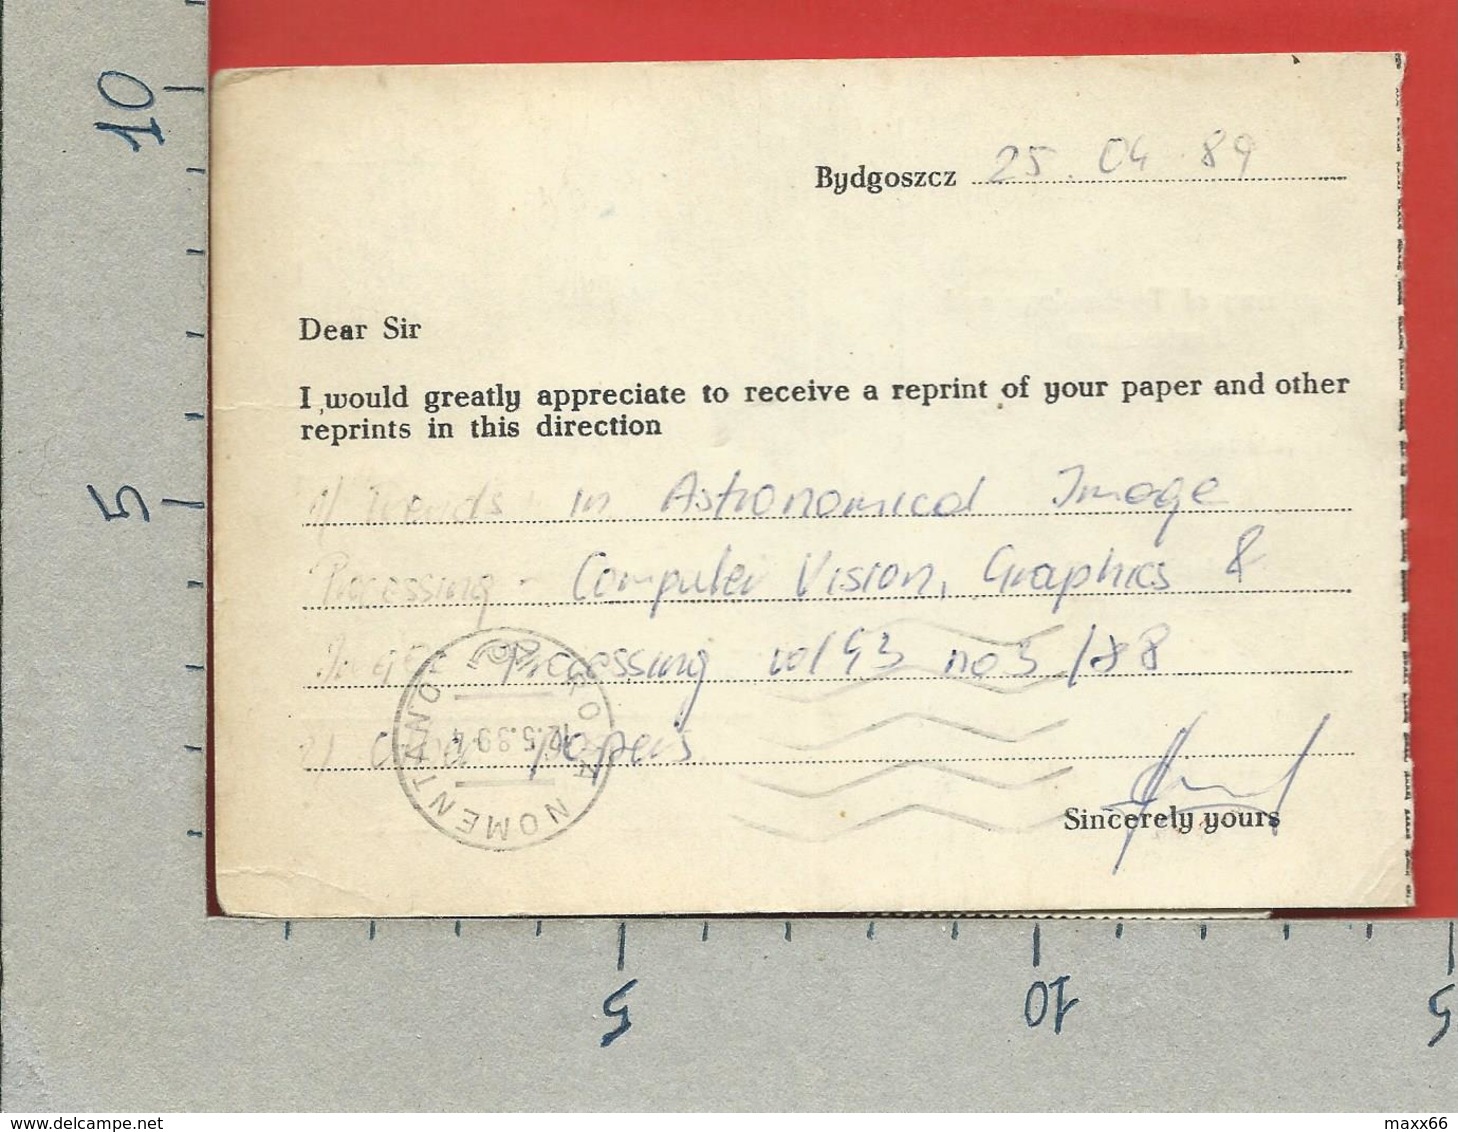 10
Bydgoszcz 25.04.89
Dear Sir
I would greatly appreciate to receive a reprint of your paper and other
reprints in this direction
1/ Trends in Astronomical Image
Processing - Computer Vision, Graphics &
Image Processing vol 43 no 3 /88
2/ other papers
ROMA NOMENTANO
12.5.89
Sincerely yours
5
5
10
5
delcampe.net
maxx66